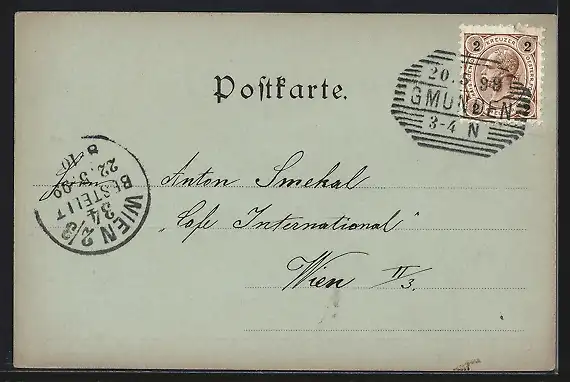 2 KREUZER 2
20. 5 99
GMUNDEN
3-4 N
Postkarte.
8-10
22.5.99
BESTELLT
WIEN 2/3
34
Anton Smekal
„Cafe International"
Wien II/3.